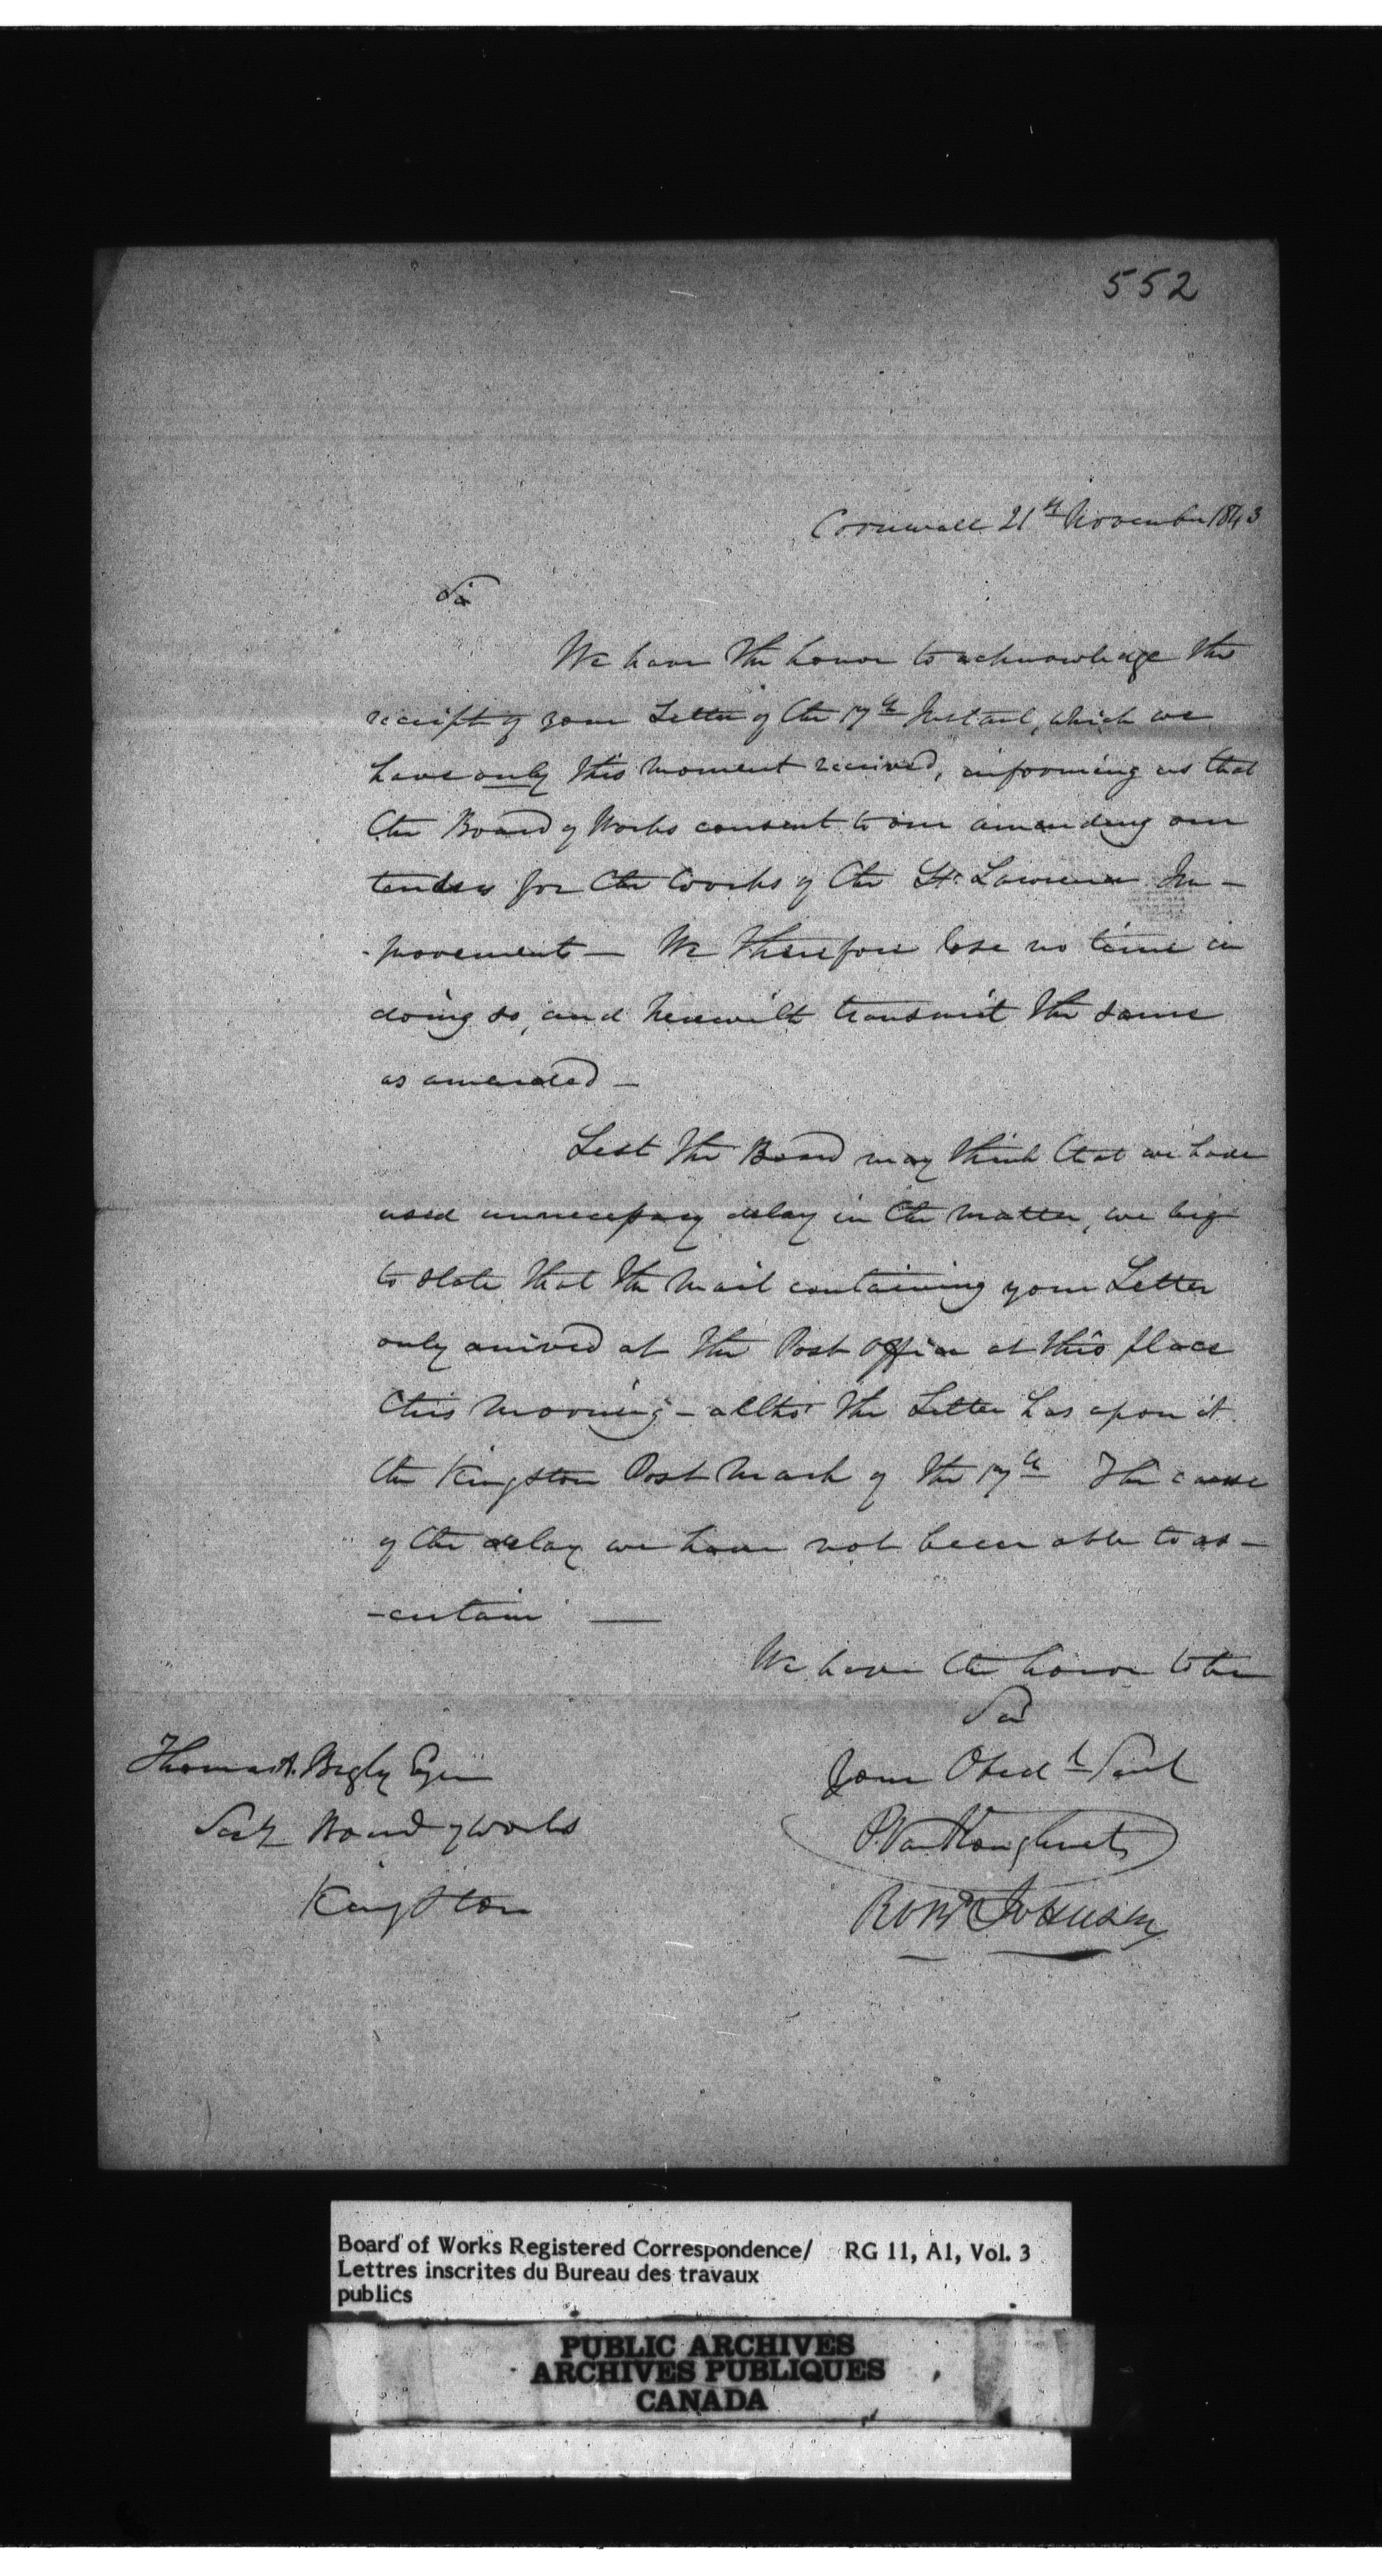 552
Cornwall 21st November 1843
Sir
We have the honor to acknowledge the
receipt of your Letter of the 17th Instant, which we
have only this moment received, informing us that
the Board of Works consent to our amending our
tenders for the Works of the St. Lawrence Im-
-provements - We therefore lose no time in
doing so, and herewith transmit the same
as amended -
Lest the Board may think that we have
used unnecessary delay in the matter, we beg
to state that the mail containing your Letter
only arrived at the Post Office at this place
this morning - altho' the Letter has upon it
the Kingston Post Mark of the 17th The cause
of the delay we have not been able to as-
-certain —
We have the honor to be
Sir
Your Obedt Servt
P. VanKoughnet
Robt Johnson
Thomas A. Begly Esqr
Secty Board of Works
Kingston
Board of Works Registered Correspondence/ RG 11, A1, Vol. 3
Lettres inscrites du Bureau des travaux
publics
PUBLIC ARCHIVES
ARCHIVES PUBLIQUES
CANADA